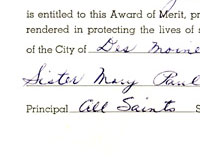 is entitled to this Award of Merit, pr
rendered in protecting the lives of s
of the City of Des Moine
Sister Mary Paul
Principal All Saints S